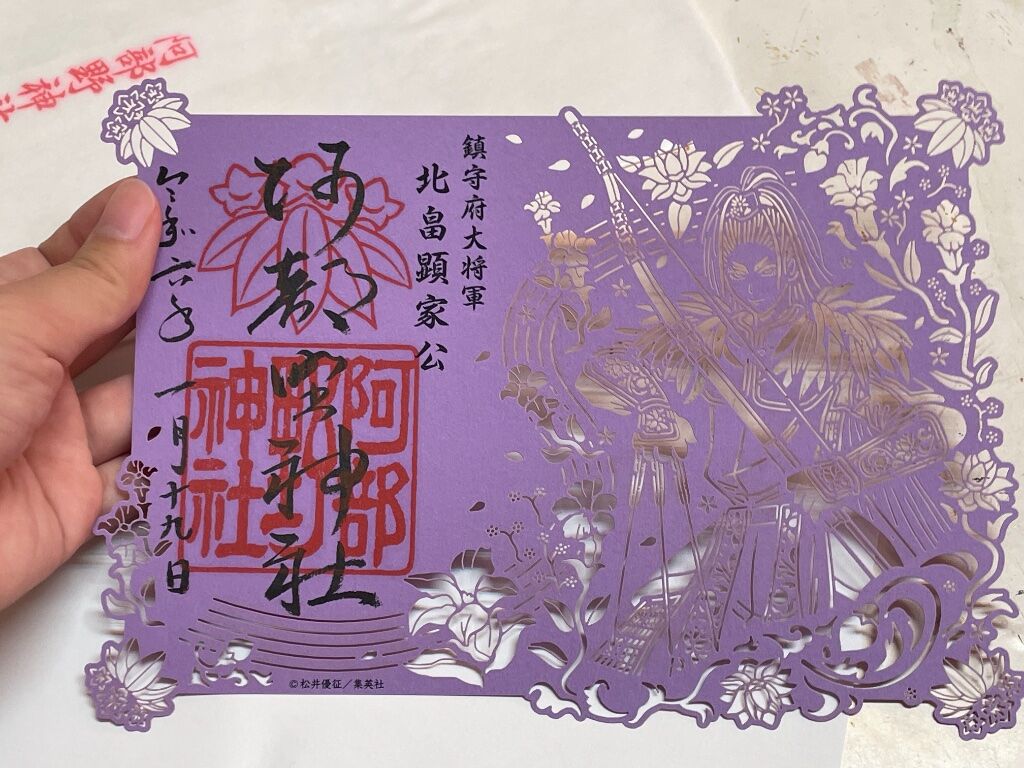 鎮守府大将軍
北畠顕家公
阿部野神社
阿部野神社
令和六年 一月十九日
©松井優征／集英社
阿部野神社